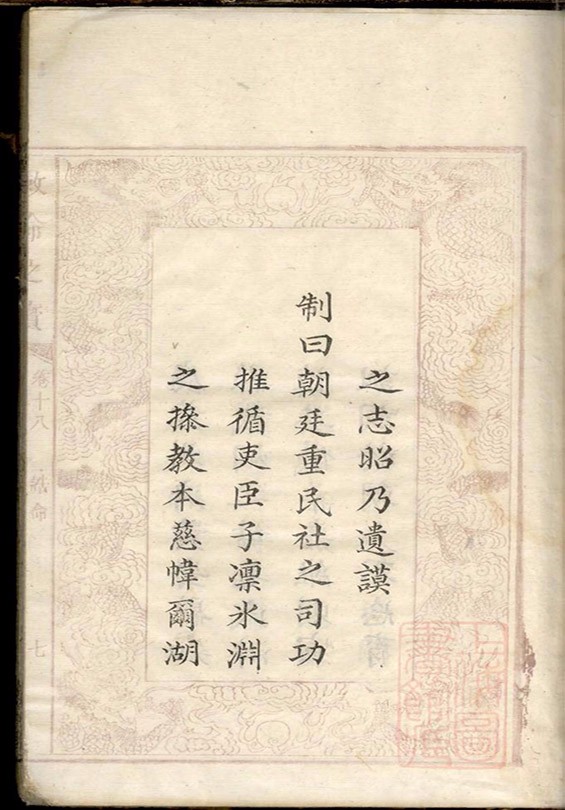 之志昭乃遺謨
制曰朝廷重民社之司功
推循吏臣子凛氷淵
之操教本慈幃爾湖
卷十八
誥命
七